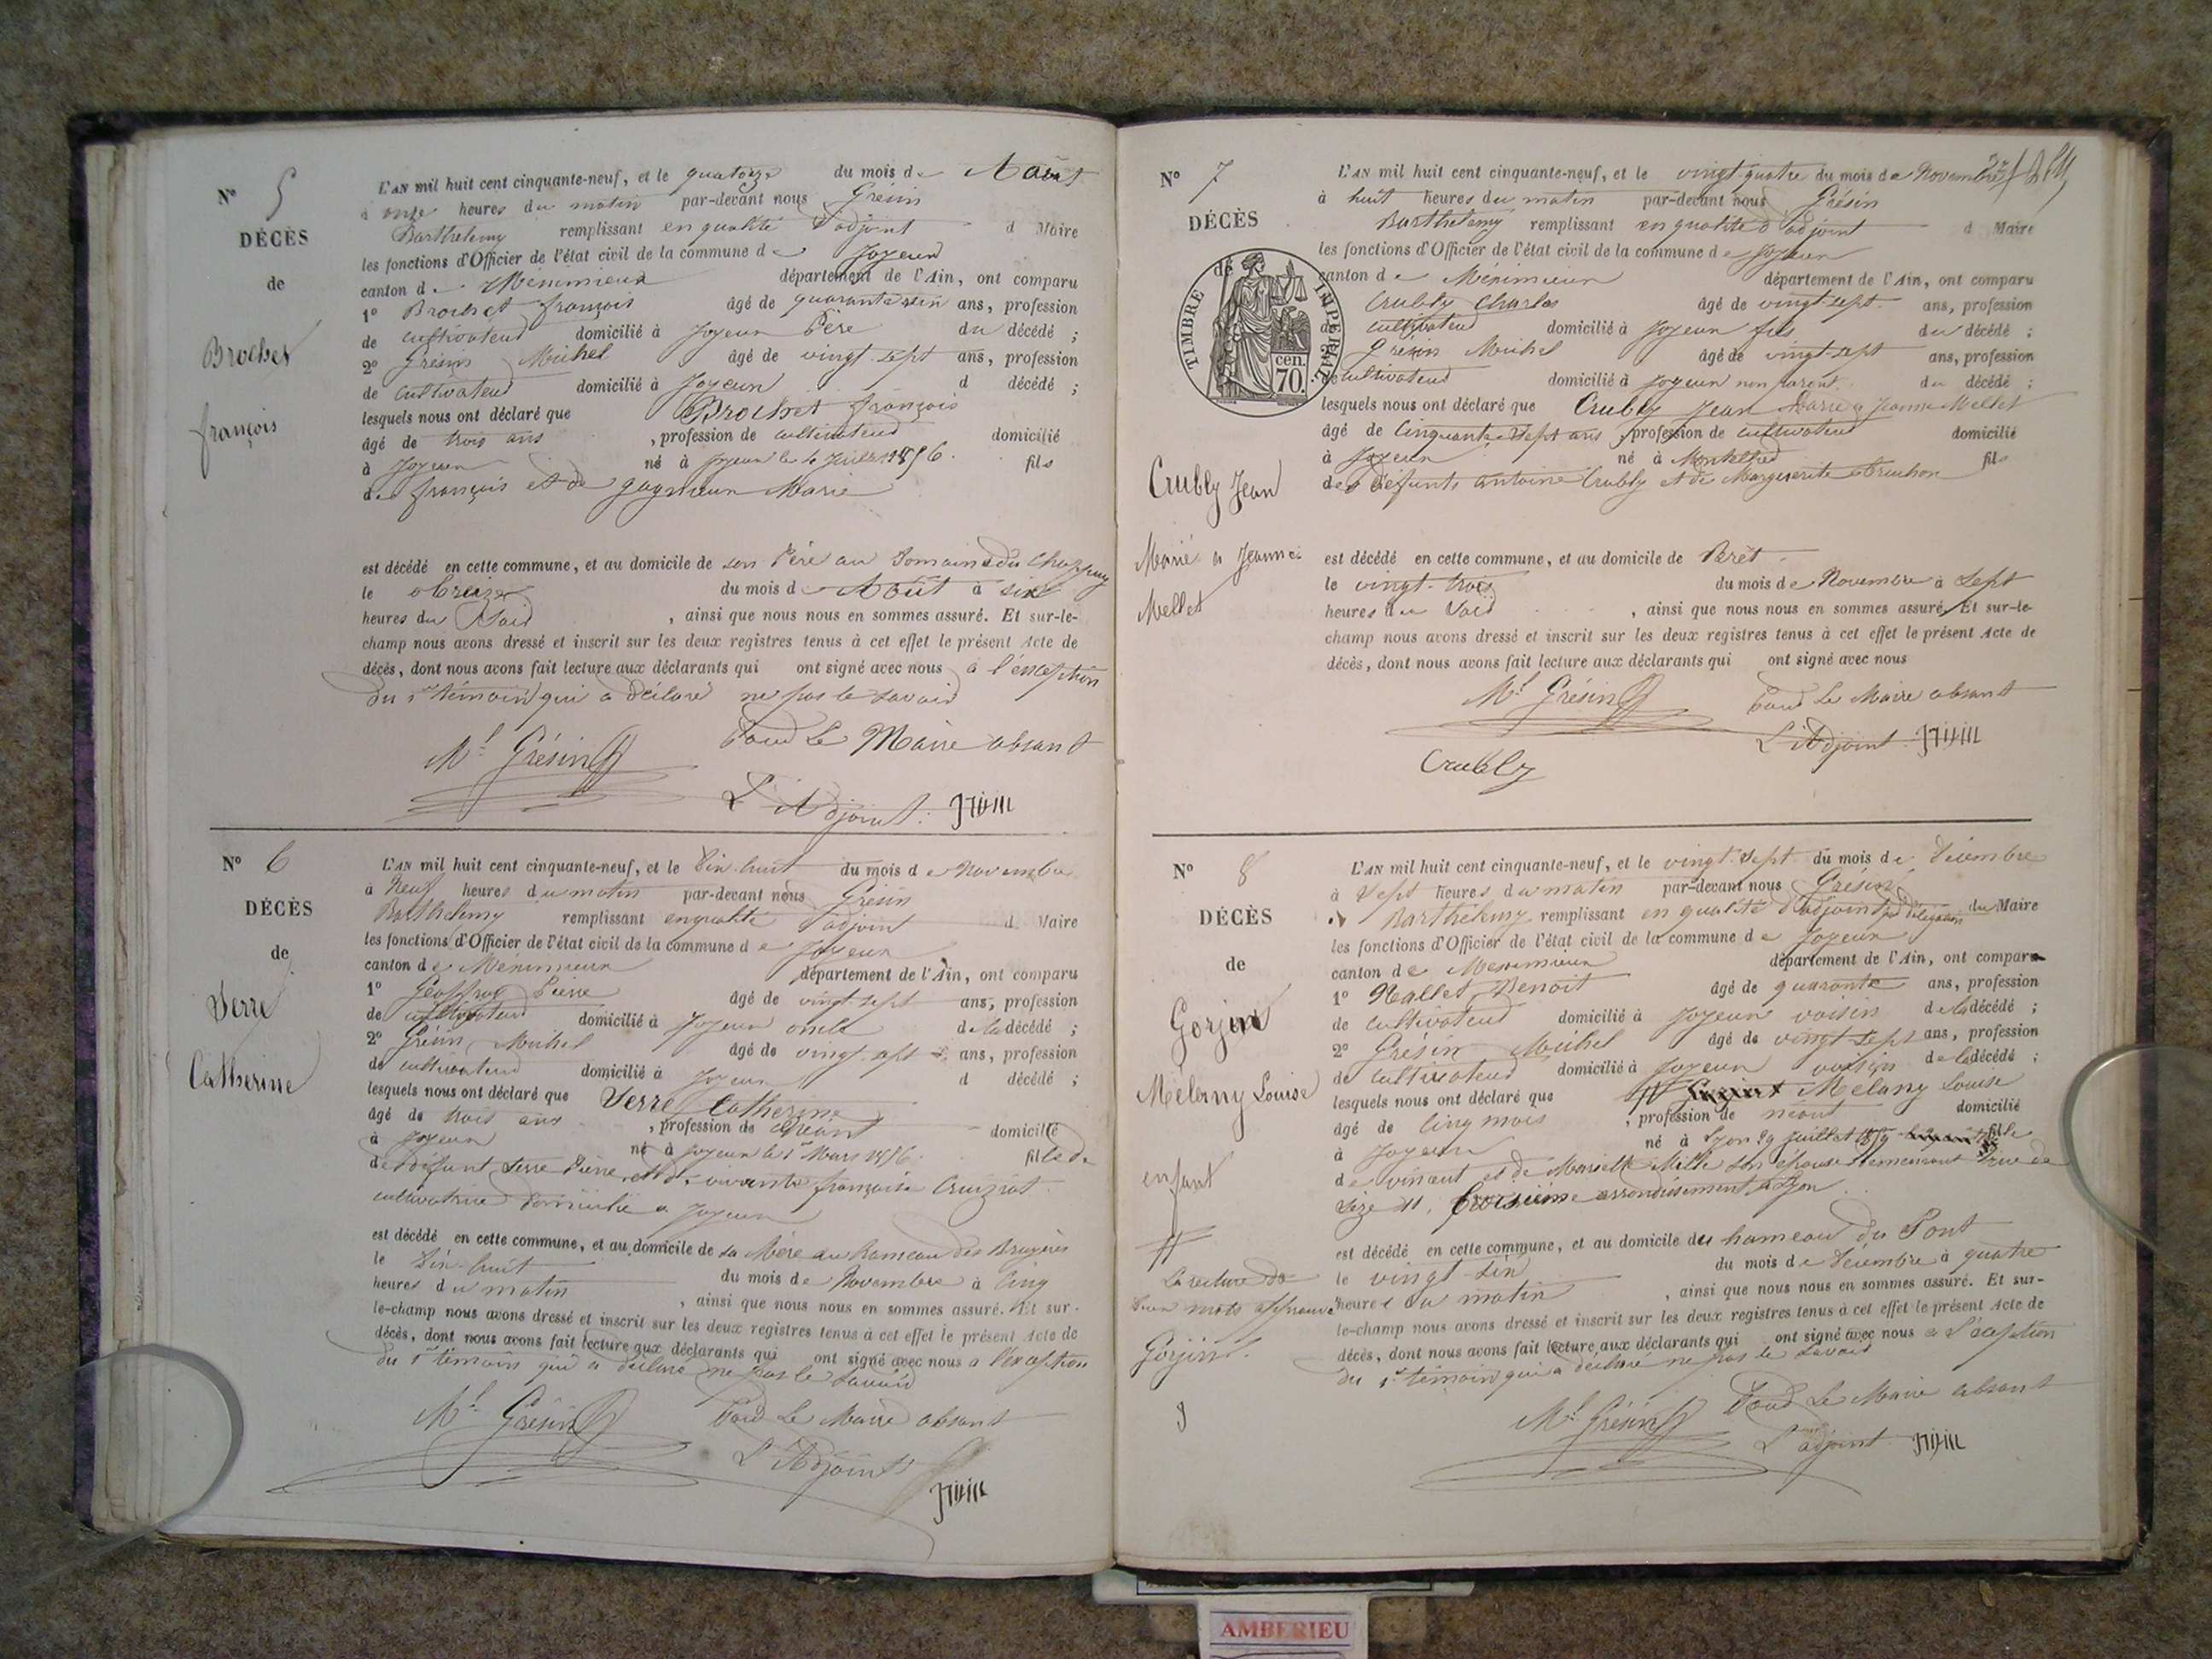 N° 5
DÉCÈS
de
Brochet
françois
L'AN mil huit cent cinquante-neuf, et le quatorze du mois de Août
à onze heures du matin par-devant nous Grésin
Barthelemy remplissant en qualité d'adjoint d Maire
les fonctions d'Officier de l'état civil de la commune de Joyeux
canton de Méximieux département de l'Ain, ont comparu
1° Brochet françois âgé de quarante six ans, profession
de cultivateur domicilié à Joyeux Père du décédé ;
2° Grésin Michel âgé de vingt-sept ans, profession
de cultivateur domicilié à Joyeux d décédé ;
lesquels nous ont déclaré que Brochet françois
âgé de trois ans , profession de cultivateur domicilié
à Joyeux né à Joyeux le Juillet 1856. fils
de françois et de Marie
est décédé en cette commune, et au domicile de son Père au Domaine du
le Treize du mois de Août à six
heures du Soir , ainsi que nous nous en sommes assuré. Et sur-le-
champ nous avons dressé et inscrit sur les deux registres tenus à cet effet le présent Acte de
décès, dont nous avons fait lecture aux déclarants qui ont signé avec nous à l'exception
du 1er témoin qui a déclaré ne pas le savoir
Ml Grésin Pour Le Maire absant
L'Adjoint
N° 6
DÉCÈS
de
Serre
Catherine
L'AN mil huit cent cinquante-neuf, et le Dix-huit du mois de Novembre
à Neuf heures du matin par-devant nous Grésin
Barthelemy remplissant en qualité d'adjoint d Maire
les fonctions d'Officier de l'état civil de la commune de Joyeux
canton de Méximieux département de l'Ain, ont comparu
1° Geoffroy Pierre âgé de vingt sept ans, profession
de cultivateur domicilié à Joyeux oncle de la décédé ;
2° Grésin Michel âgé de vingt-sept ans, profession
de cultivateur domicilié à Joyeux d décédé ;
lesquels nous ont déclaré que Serre Catherine
âgé de trois ans , profession de Néant domicilié
à Joyeux né à Joyeux le 1er Mars 1856. fille de
de défunt Serre Pierre et de vivante françoise
cultivatrice domicilié a Joyeux
est décédé en cette commune, et au domicile de sa Mère au hameau des Bruyères
le Dix-huit du mois de Novembre à Cinq
heures du matin , ainsi que nous nous en sommes assuré. Et sur-
le-champ nous avons dressé et inscrit sur les deux registres tenus à cet effet le présent Acte de
décès, dont nous avons fait lecture aux déclarants qui ont signé avec nous a l'exception
du 1er témoin qui a déclaré ne pas le savoir
Ml Grésin Pour Le Maire absant
L'Adjoint
N° 7
DÉCÈS
TIMBRE IMPÉRIAL
70 cen.
Crubly Jean
Marié a Jeanne
Mellet
L'AN mil huit cent cinquante-neuf, et le vingt-quatre du mois de Novembre
à huit heures du matin par-devant nous Grésin
Barthelemy remplissant en qualité d'adjoint d Maire
les fonctions d'Officier de l'état civil de la commune de Joyeux
canton de Méximieux département de l'Ain, ont comparu
Crubly Charles âgé de vingt-sept ans, profession
de cultivateur domicilié à Joyeux fils du décédé ;
Grésin Michel âgé de vingt-sept ans, profession
de cultivateur domicilié à Joyeux non parent du décédé ;
lesquels nous ont déclaré que Crubly Jean Marié a Jeanne Mellet
âgé de Cinquante Sept ans , profession de cultivateur domicilié
à Joyeux né à fils
des défunts antoine Crubly et de Marguerite
est décédé en cette commune, et au domicile de
le vingt-trois du mois de Novembre à Sept
heures du Soir , ainsi que nous nous en sommes assuré. Et sur-le-
champ nous avons dressé et inscrit sur les deux registres tenus à cet effet le présent Acte de
décès, dont nous avons fait lecture aux déclarants qui ont signé avec nous
Ml Grésin Pour Le Maire absant
L'Adjoint
Crubly
N° 8
DÉCÈS
de
Mélany Louise
enfant
mots
L'AN mil huit cent cinquante-neuf, et le vingt-sept du mois de Décembre
à Sept heures du matin par-devant nous Grésin
Barthélemy remplissant en qualité d'adjoint par délégation du Maire
les fonctions d'Officier de l'état civil de la commune de Joyeux
canton de Meximieux département de l'Ain, ont comparu
1° Benoit âgé de quarante ans, profession
de cultivateur domicilié à Joyeux voisin de la décédé ;
2° Grésin Michel âgé de vingt-sept ans, profession
de cultivateur domicilié à Joyeux voisin de la décédé ;
lesquels nous ont déclaré que Melany Louise
âgé de Cinq mois , profession de néant domicilié
à Joyeux né à Lyon 29 juillet 1859 fille
de vincent et de Mille son épouse demeurant rue de
Sèze 11, troisième arrondissement Lyon
est décédé en cette commune, et au domicile du hameau du Pont
le vingt-six du mois de Décembre à quatre
heures du matin , ainsi que nous nous en sommes assuré. Et sur-
le-champ nous avons dressé et inscrit sur les deux registres tenus à cet effet le présent Acte de
décès, dont nous avons fait lecture aux déclarants qui ont signé avec nous a l'exeption
du 1er témoin qui a déclaré ne pas le savoir
Ml Grésin Pour Le Maire absant
L'adjoint
AMBERIEU